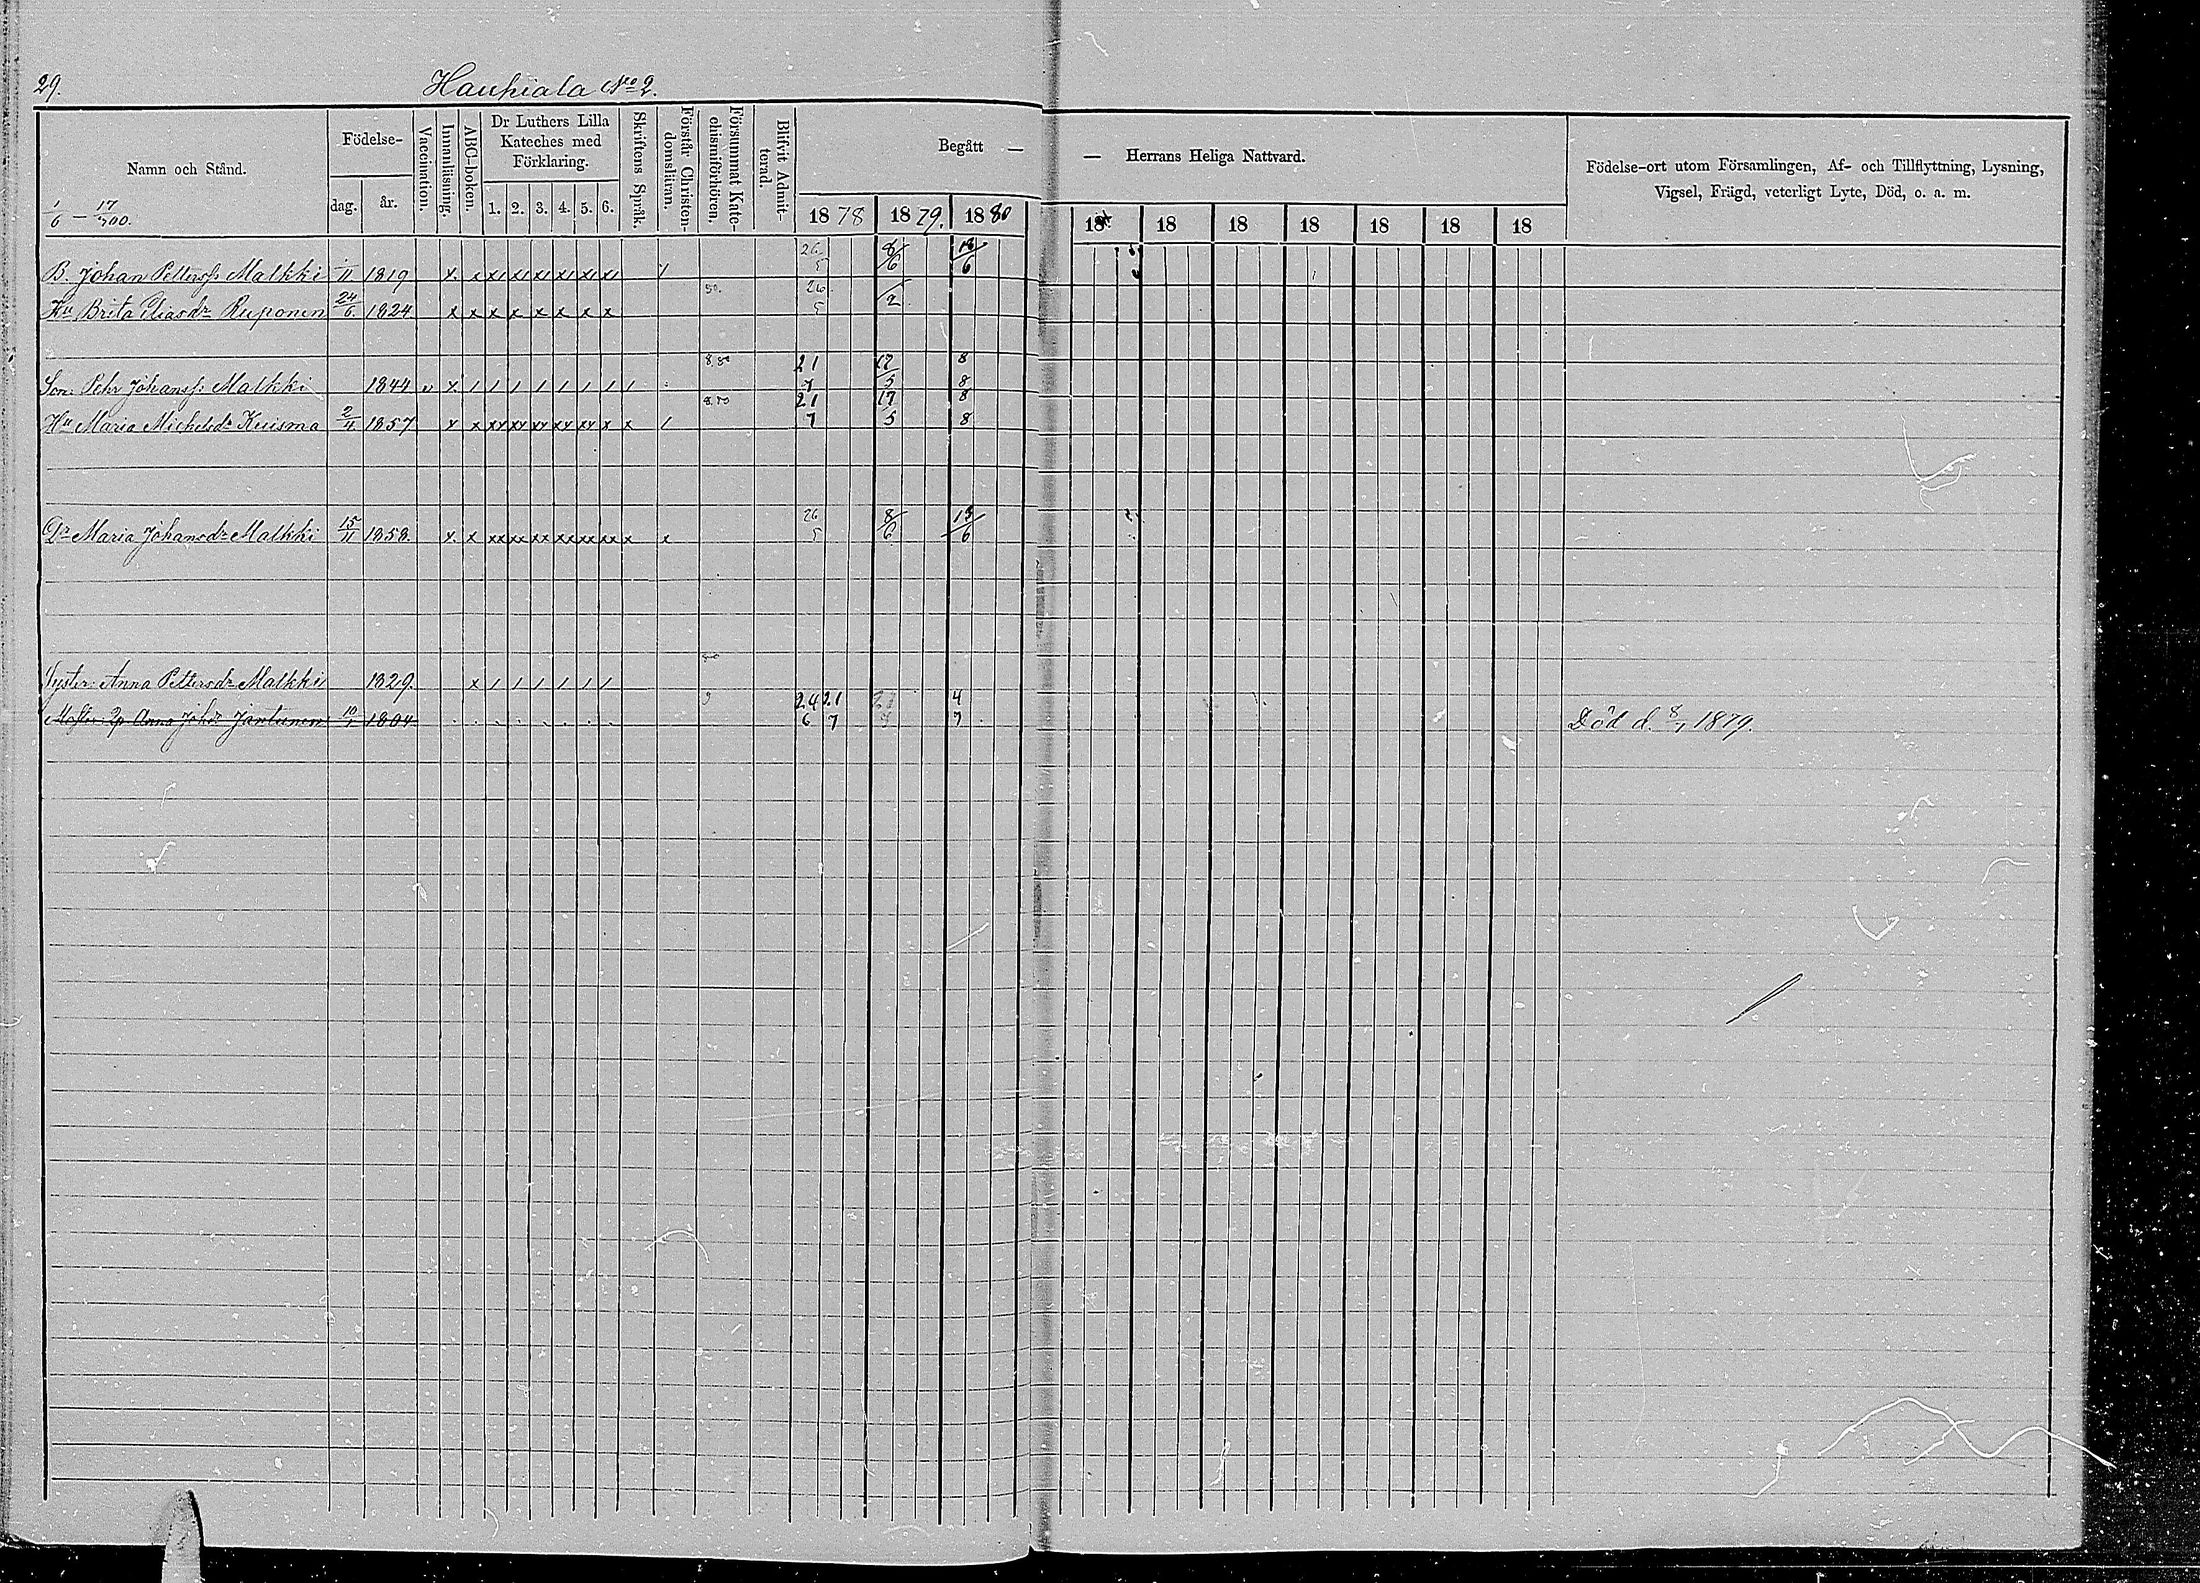 29.
Hauhiala No 2.
Namn och Stånd.
1/6 — 17/700.
Födelse-
dag. år.
Vaccination.
Innanläsning.
ABC-boken.
Dr Luthers Lilla Kateches med Förklaring.
1. 2. 3. 4. 5. 6.
Skriftens Språk.
Förstår Christen-domsläran.
Försummat Kate-chismiförhören.
Blifvit Admit-terad.
Begått — — Herrans Heliga Nattvard.
1878 1879. 1880 18 18 18 18 18 18 18
Födelse-ort utom Församlingen, Af- och Tillflyttning, Lysning,
Vigsel, Frägd, veterligt Lyte, Död, o. a. m.
B. Johan Petterss. Malkki 1/11 1819 x. x x1 x1 x1 x1 x1 x1 1 26/5 8/6 18/6
Hu Brita Eliasdr Ruponen 24/6 1824 x x x x x x x x 26/5 /2
Son: Pehr Johanss: Malkki 1844 v x 1 1 1 1 1 1 1 1 8.80 21/7 17/5 8/8
Hu Maria Michelsdr Kuisma 2/11 1857 x x xx xx xx xx xx x x 1 8.80 21/7 17/5 8/8
Dr Maria Johansdr Malkki 15/11 1858. x. x xx xx xx xx xx xx x x 26/5 8/6 13/6
Syster: Anna Pettersdr Malkki 1829. x 1 1 1 1 1 1
Anna Johdr Jantunen 10/1 1804 24/6 21/7 4/7 Död d. 8/7 1879.